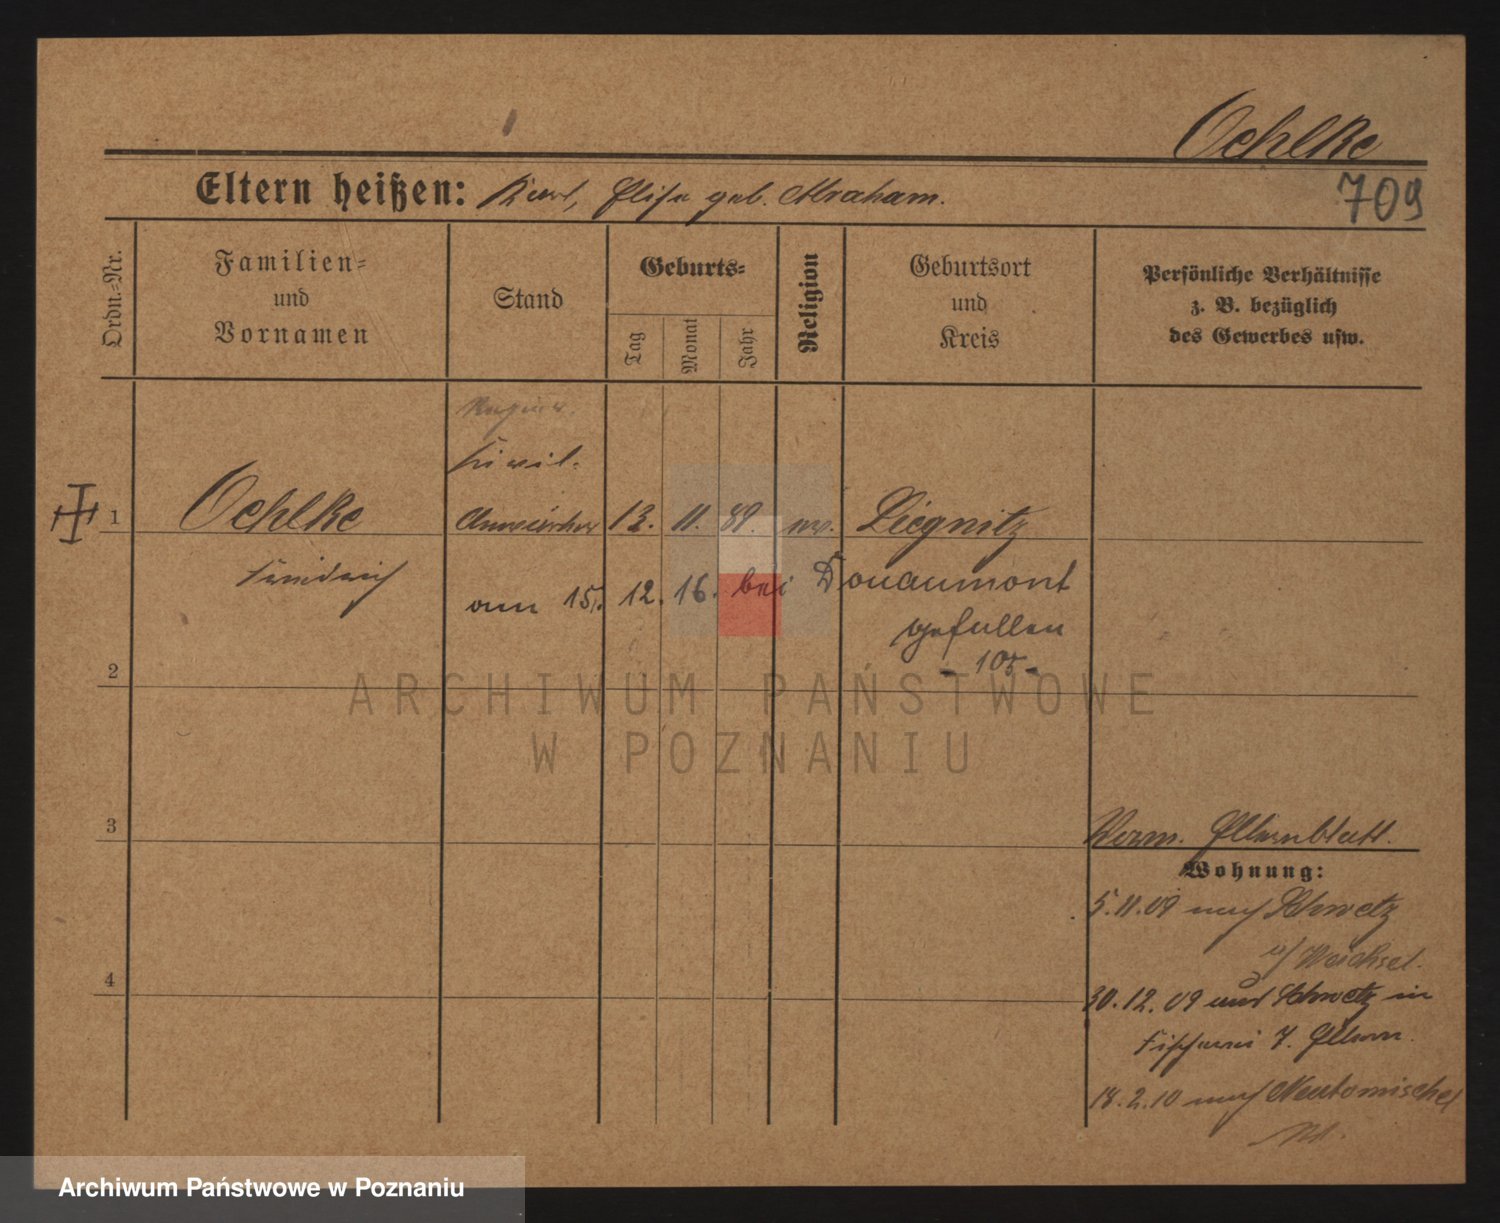 Oehlke
Eltern heißen: Karl, Elise geb. Abraham.
709
Ordn.-Nr.
Familien-
und
Vornamen
Stand
Geburts-
Tag
Monat
Jahr
Religion
Geburtsort
und
Kreis
Persönliche Verhältnisse
z. B. bezüglich
des Gewerbes usw.
Civil-
1 Oehlke Anwärter 13. 11. 89. ev. Liegnitz
Friedrich
am 15. 12. 16. bei Douaumont
gefallen
- 105 -
2
ARCHIWUM PAŃSTWOWE
W POZNANIU
3
Verm. Elternblatt.
Wohnung:
5.11.09 nach Schwetz
a/ Weichsel.
4
30.12.09 aus Schwetz in
Fischerei 7. Eltern.
18.2.10 nach Neutomischel
Archiwum Państwowe w Poznaniu